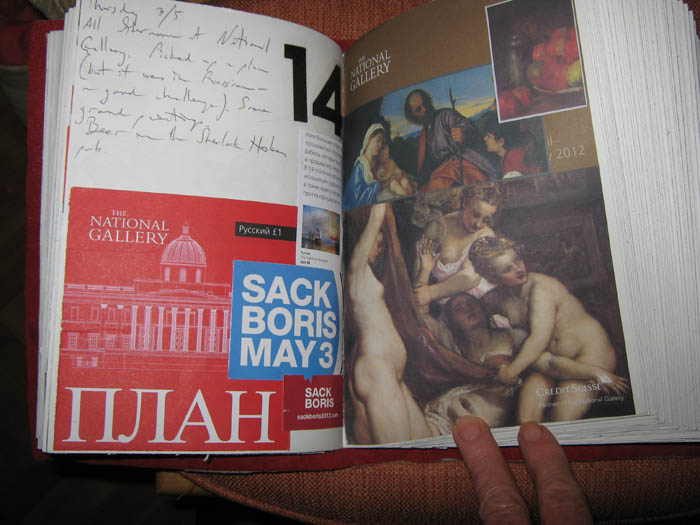 Thursday 3/5
All afternoon at National
Gallery. Picked up a plan
(but it was in Russian –
a good challenge.) Some
grand paintings.
Beer in the Sherlock Holmes
pub.
14
THE
NATIONAL
GALLERY
Русский £1
SACK
BORIS
MAY 3
SACK
BORIS
sackboris2012.com
ПЛАН
THE
NATIONAL
GALLERY
2012
CREDIT SUISSE
Partner of the National Gallery